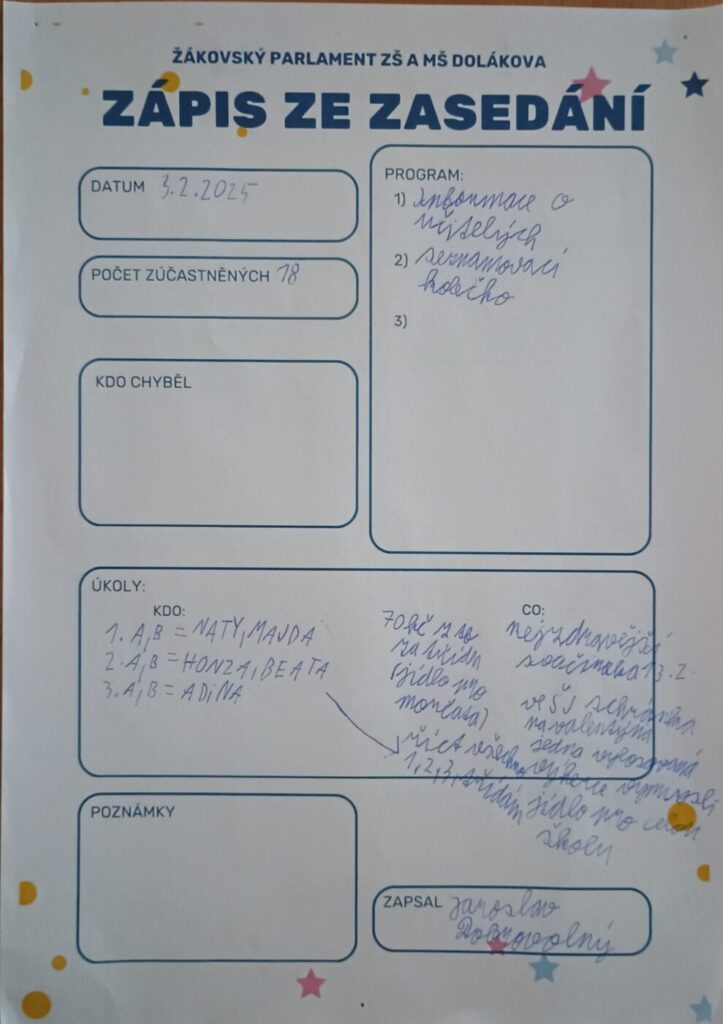 ŽÁKOVSKÝ PARLAMENT ZŠ A MŠ DOLÁKOVA
ZÁPIS ZE ZASEDÁNÍ
DATUM 3.2.2025
POČET ZÚČASTNĚNÝCH 18
KDO CHYBĚL
PROGRAM:
1) Informace o
učitelých
2) seznamovací
kolečko
3)
ÚKOLY:
KDO:
1. A,B = NATY, MAJDA
2. A,B = HONZA, BEATA
3. A,B = ADINA
70 kč
za třídu
(jídlo pro
morčata)
říct všem
1,2,3, třídám
CO:
nejzdravější
svačinka 13.2.
ve ŠJ schránka
na valentýna
jedna vylosovaná
výherce vymyslí
jídlo pro celou
školu
POZNÁMKY
ZAPSAL Jaroslav
Dobrovolný